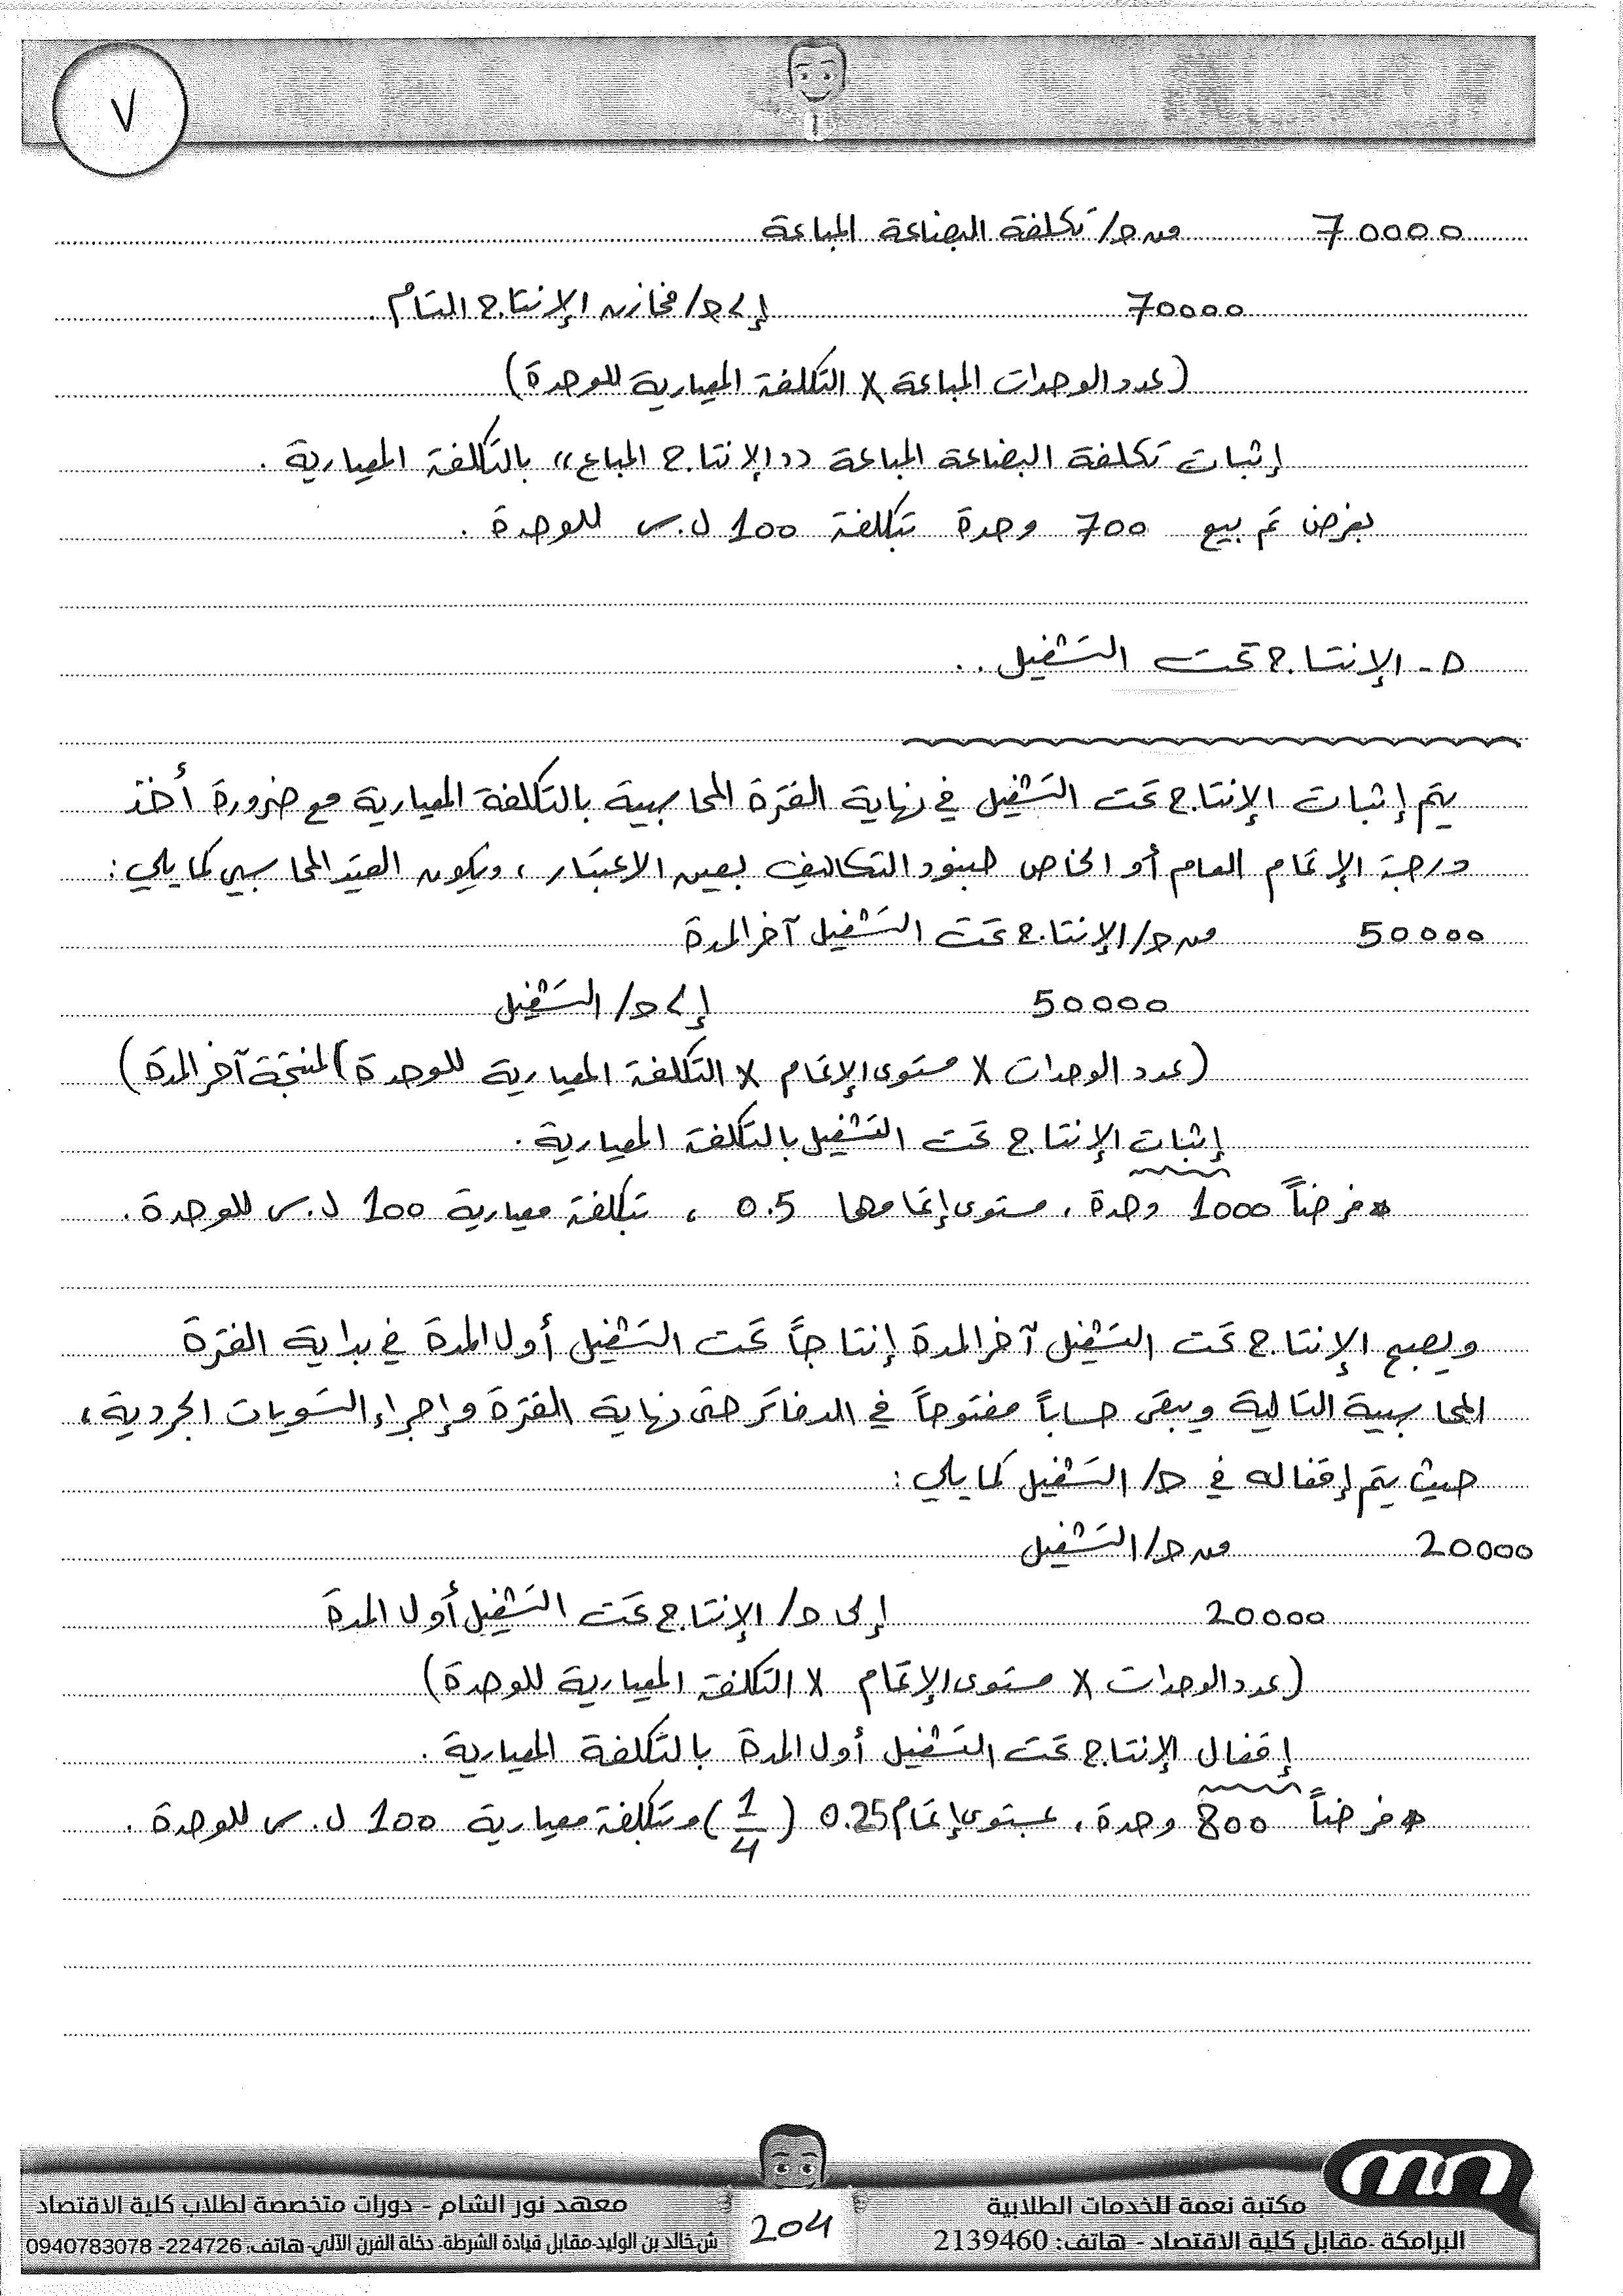 ٧
70000 من ح/ تكلفة البضاعة المباعة
70000 إلى ح/ مخازن الإنتاج التام .
(عدد الوحدات المباعة X التكلفة المعيارية للوحدة)
إثبات تكلفة البضاعة المباعة ((الإنتاج المباع)) بالتكلفة المعيارية .
بفرض تم بيع 700 وحدة بتكلفة 100 ل.س للوحدة .
٥- الإنتاج تحت التشغيل ..
يتم إثبات الإنتاج تحت التشغيل في نهاية الفترة المحاسبية بالتكلفة المعيارية مع ضرورة أخذ
درجة الإتمام العام أو الخاص ببنود التكاليف بعين الاعتبار ، ويكون القيد المحاسبي كما يلي :
50000 من ح/ الإنتاج تحت التشغيل آخر المدة
50000 إلى ح/ التشغيل
(عدد الوحدات X مستوى الإتمام X التكلفة المعيارية للوحدة المنتجة آخر المدة)
إثبات الإنتاج تحت التشغيل بالتكلفة المعيارية .
* فرضاً 1000 وحدة ، مستوى إتمامها 0.5 ، بتكلفة معيارية 100 ل.س للوحدة .
ويصبح الإنتاج تحت التشغيل آخر المدة إنتاجاً تحت التشغيل أول المدة في بداية الفترة
المحاسبية التالية ويبقى حساباً مفتوحاً في الدفاتر حتى نهاية الفترة وإجراء التسويات الجردية ،
حيث يتم إقفاله في ح/ التشغيل كما يلي :
20000 من ح/ التشغيل
20000 إلى ح/ الإنتاج تحت التشغيل أول المدة
(عدد الوحدات X مستوى الإتمام X التكلفة المعيارية للوحدة)
إقفال الإنتاج تحت التشغيل أول المدة بالتكلفة المعيارية .
* فرضاً 800 وحدة ، بمستوى إتمام 0.25 (1/4) وبتكلفة معيارية 100 ل.س للوحدة .
مكتبة نعمة للخدمات الطلابية
البرامكة -مقابل كلية الاقتصاد - هاتف: 2139460
204
معهد نور الشام - دورات متخصصة لطلاب كلية الاقتصاد
ش.خالد بن الوليد-مقابل قيادة الشرطة- دخلة الفرن الآلي- هاتف: 224726- 0940783078